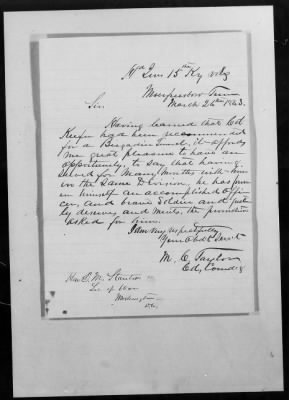 Hd Qrs 15th Ky Vols
Murfreesboro Tenn
March 26th 1863.
Sir
Having learned that Col
Keefer had been recommended
for a Brigadier Genl, it affords
me great pleasure to have an
opportunity, to say that having
served for many months with him
in the same Division, he has proven
himself an accomplished offi-
cer, and brave Soldier and just-
ly deserves and merits, the promotion
asked for him.
I am very respectfully
Your Obdt Servt
M. C. Taylor
Col, Comdg
Hon E. M. Stanton
Sec of War
Washington
D.C.